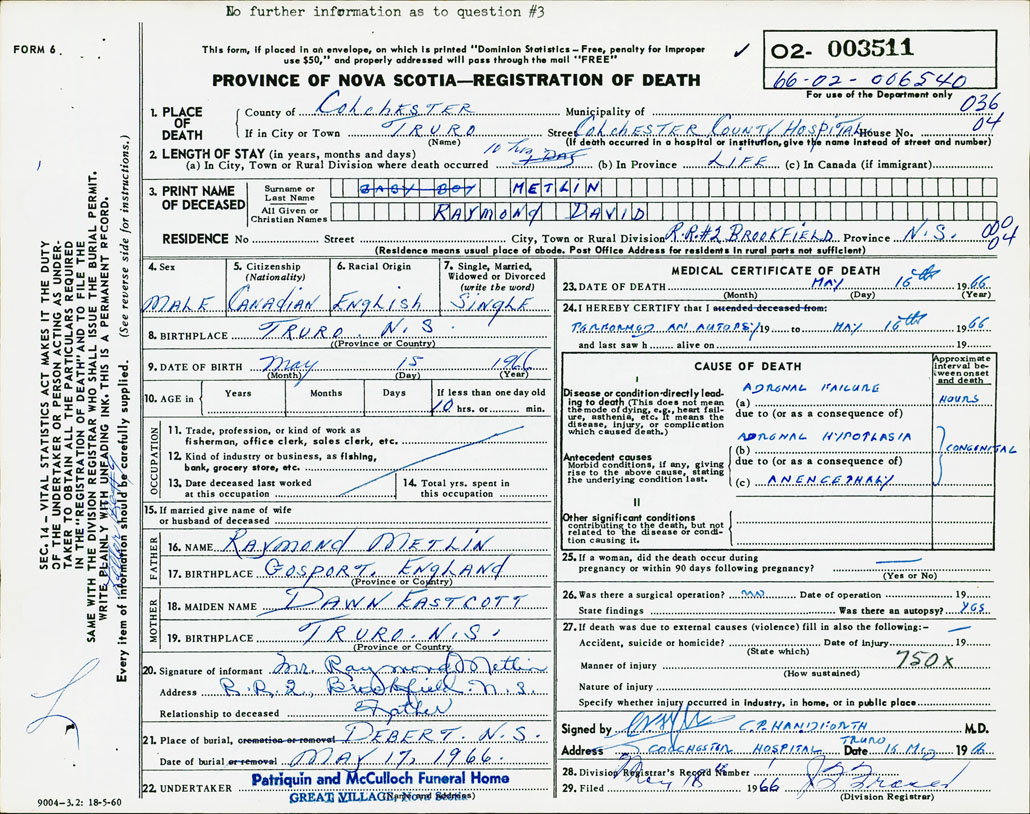 No further information as to question #3
FORM 6.
This form, if placed in an envelope, on which is printed "Dominion Statistics – Free, penalty for improper
use $50," and properly addressed will pass through the mail "FREE"
✓ 02- 003511
66-02-006540
For use of the Department only
PROVINCE OF NOVA SCOTIA—REGISTRATION OF DEATH
036
04
1. PLACE OF DEATH
County of COLCHESTER Municipality of
If in City or Town TRURO Street COLCHESTER COUNTY HOSPITAL House No.
(Name) (If death occurred in a hospital or institution, give the name instead of street and number)
2. LENGTH OF STAY (in years, months and days)
(a) In City, Town or Rural Division where death occurred 10 hrs 1 DAY (b) In Province LIFE (c) In Canada (if immigrant)
3. PRINT NAME OF DECEASED
Surname or Last Name BABY BOY METLIN
All Given or Christian Names RAYMOND DAVID
RESIDENCE No Street City, Town or Rural Division R.R.#2 BROOKFIELD Province N.S.
000
04
(Residence means usual place of abode. Post Office Address for residents in rural parts not sufficient)
4. Sex
MALE
5. Citizenship
(Nationality)
CANADIAN
6. Racial Origin
ENGLISH
7. Single, Married,
Widowed or Divorced
(write the word)
SINGLE
8. BIRTHPLACE TRURO N.S.
(Province or Country)
9. DATE OF BIRTH May 15 1966
(Month) (Day) (Year)
10. AGE in Years Months Days If less than one day old
10 hrs. or min.
OCCUPATION
11. Trade, profession, or kind of work as
fisherman, office clerk, sales clerk, etc.
12. Kind of industry or business, as fishing,
bank, grocery store, etc.
13. Date deceased last worked
at this occupation
14. Total yrs. spent in
this occupation
15. If married give name of wife
or husband of deceased
FATHER
16. NAME RAYMOND METLIN
17. BIRTHPLACE GOSPORT, ENGLAND
(Province or Country)
MOTHER
18. MAIDEN NAME DAWN EASTCOTT
19. BIRTHPLACE TRURO. N.S.
(Province or Country
20. Signature of informant Mr. Raymond Metlin
Address R.R.2, Brookfield. N.S.
Relationship to deceased Father
21. Place of burial, cremation or removal DEBERT. N.S.
Date of burial or removal MAY 17, 1966.
22. UNDERTAKER Patriquin and McCulloch Funeral Home
GREAT VILLAGE, Nova Scotia
(Name and Address)
9004-3.2: 18-5-60
MEDICAL CERTIFICATE OF DEATH
23. DATE OF DEATH MAY 16th 1966
(Month) (Day) (Year)
24. I HEREBY CERTIFY that I attended deceased from:
PERFORMED AN AUTOPSY 19 to MAY 16th 1966
and last saw h alive on 19
CAUSE OF DEATH
Approximate
interval be-
tween onset
and death
I
Disease or condition directly lead-
ing to death (This does not mean
the mode of dying, e.g., heart fail-
ure, asthenia, etc. It means the
disease, injury, or complication
which caused death.)
(a) ADRENAL FAILURE HOURS
due to (or as a consequence of)
Antecedent causes
Morbid conditions, if any, giving
rise to the above cause, stating
the underlying condition last.
(b) ADRENAL HYPOPLASIA CONGENITAL
due to (or as a consequence of)
(c) ANENCEPHALY
II
Other significant conditions
contributing to the death, but not
related to the disease or condi-
tion causing it.
25. If a woman, did the death occur during
pregnancy or within 90 days following pregnancy?
(Yes or No)
26. Was there a surgical operation? NO Date of operation 19
State findings Was there an autopsy? YES
27. If death was due to external causes (violence) fill in also the following:–
Accident, suicide or homicide? Date of injury 19
(State which)
Manner of injury 750x
(How sustained)
Nature of injury
Specify whether injury occurred in industry, in home, or in public place
Signed by C.P. HANDFORTH M.D.
Address COLCHESTER HOSPITAL TRURO Date 16 May 1966
28. Division Registrar's Record Number
29. Filed May 18 1966
(Division Registrar)
SEC. 14 – VITAL STATISTICS ACT MAKES IT THE DUTY
OF THE UNDERTAKER OR PERSON ACTING AS UNDER-
TAKER TO OBTAIN ALL THE PARTICULARS REQUIRED
IN THE "REGISTRATION OF DEATH" AND TO FILE THE
SAME WITH THE DIVISION REGISTRAR WHO SHALL ISSUE THE BURIAL PERMIT.
WRITE PLAINLY WITH UNFADING INK. THIS IS A PERMANENT RECORD.
Every item of information should be carefully supplied. (See reverse side for instructions.)